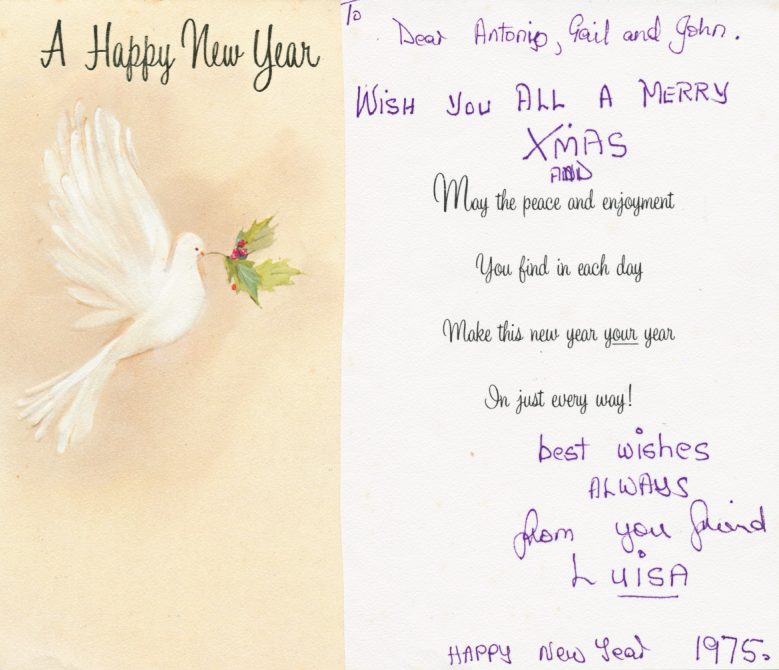 A Happy New Year
To
Dear Antonio, Gail and John.
WISH YOU ALL A MERRY
XMAS
AND
May the peace and enjoyment
You find in each day
Make this new year your year
In just every way!
best wishes
ALWAYS
from you friend
LUISA
HAPPY New Year 1975.